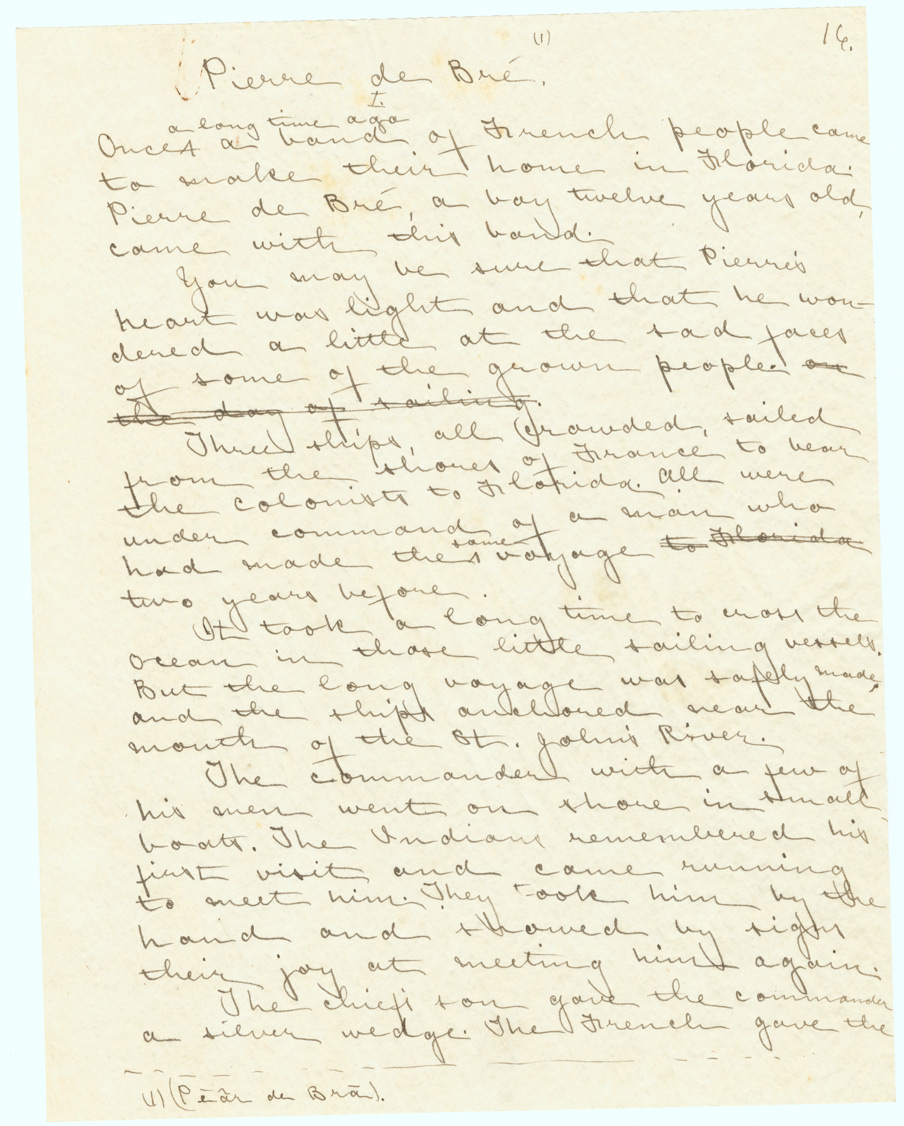 16.
Pierre de Bré. (1)
I.
a long time ago
Once ^ a band of French people came
to make their home in Florida.
Pierre de Bré, a boy twelve years old,
came with this band.
You may be sure that Pierre's
heart was light and that he won-
dered a little at the sad faces
of some of the grown people. on
the day of sailing.
Three ships, all crowded, sailed
from the shores of France to bear
the colonists to Florida. All were
under command of a man who
had made the same voyage to Florida
two years before.
It took a long time to cross the
ocean in those little sailing vessels.
But the long voyage was safely made,
and the ships anchored near the
mouth of the St. John's River.
The commander with a few of
his men went on shore in small
boats. The Indians remembered his
first visit and came running
to meet him. They took him by the
hand and showed by signs
their joy at meeting him again.
The chief's son gave the commander
a silver wedge. The French gave the
(1) (Pēâr de Brā).